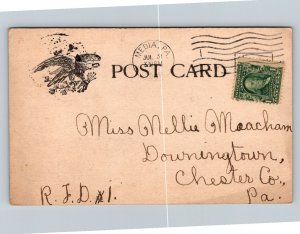 MEDIA, PA.
JUL 5
POST CARD
Miss Nellie Meacham
Downingtown,
Chester Co.,
Pa.
R.F.D. #1.